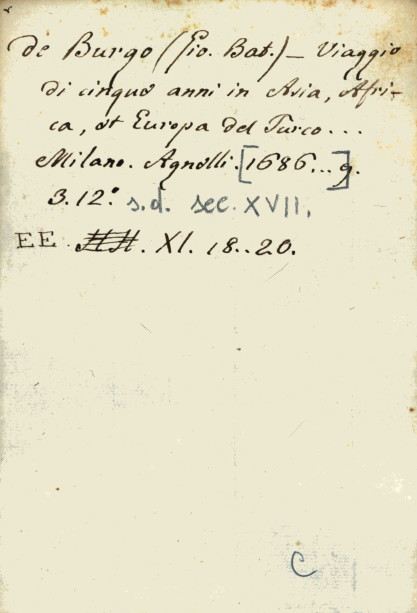 de Burgo (Gio. Bat.) — Viaggio
di cinque anni in Asia, Afri-
ca, et Europa del Turco...
Milano. Agnelli. [1686...9.]
3. 12.° s.d. sec. XVII.
EE HH. XI. 18..20.
C